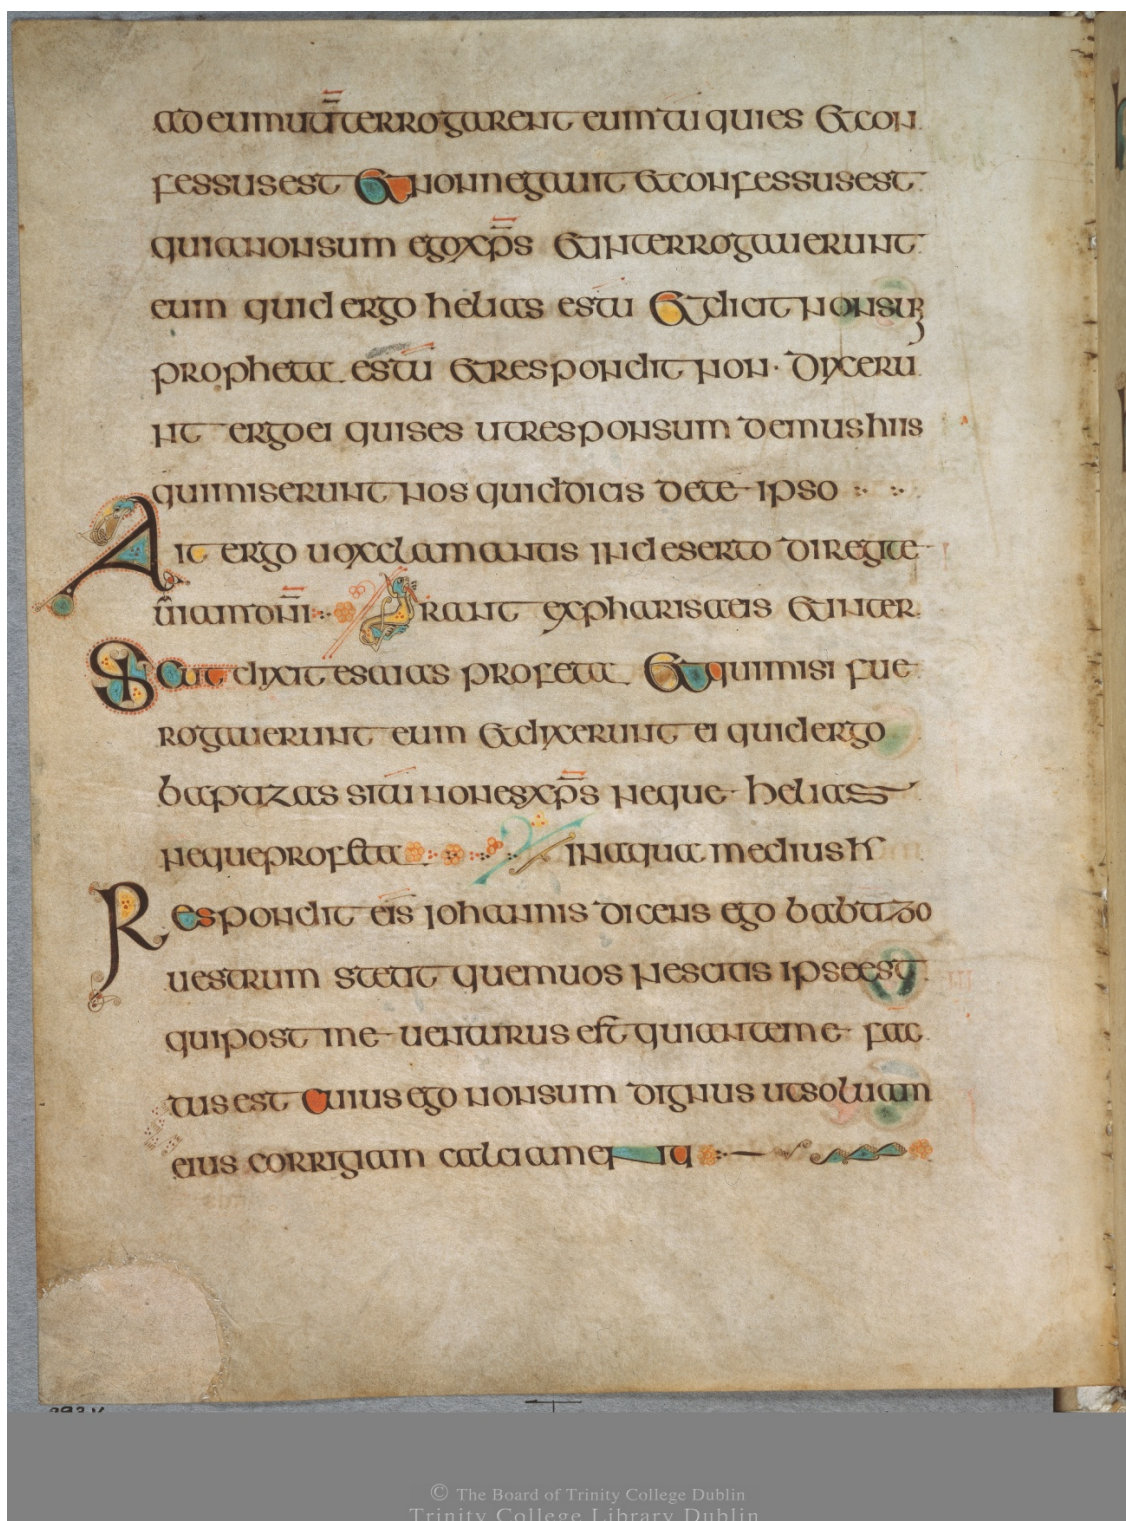 ad eum ut īterrogarent eum tu quies et con
fessus est et non negauit et confessus est
quia non sum ego xp̄s et interrogauerunt
eum quid ergo helias es tu et dicit non sum
propheta es tu et respondit non · Dixeru
nt ergo ei quis es ut responsum demus hiis
qui miserunt nos quid dicis de te ipso
Ait ergo uox clamantis in deserto dirigite
uiam dn̄i Erant ex pharisaeis et inter
Sicut dixit esaias profeta Et qui misi fue
rogauerunt eum et dixerunt ei quid ergo
baptizas si tu non es xp̄s neque helias
neque profeta in aqua medius h
Respondit eis iohannis dicens ego babtizo
uestrum stetit quem uos nescitis ipse est
qui post me uenturus est qui ante me fac
tus est Cuius ego non sum dignus ut soluam
eius corrigiam calciamenti
293 v
© The Board of Trinity College Dublin
Trinity College Library Dublin